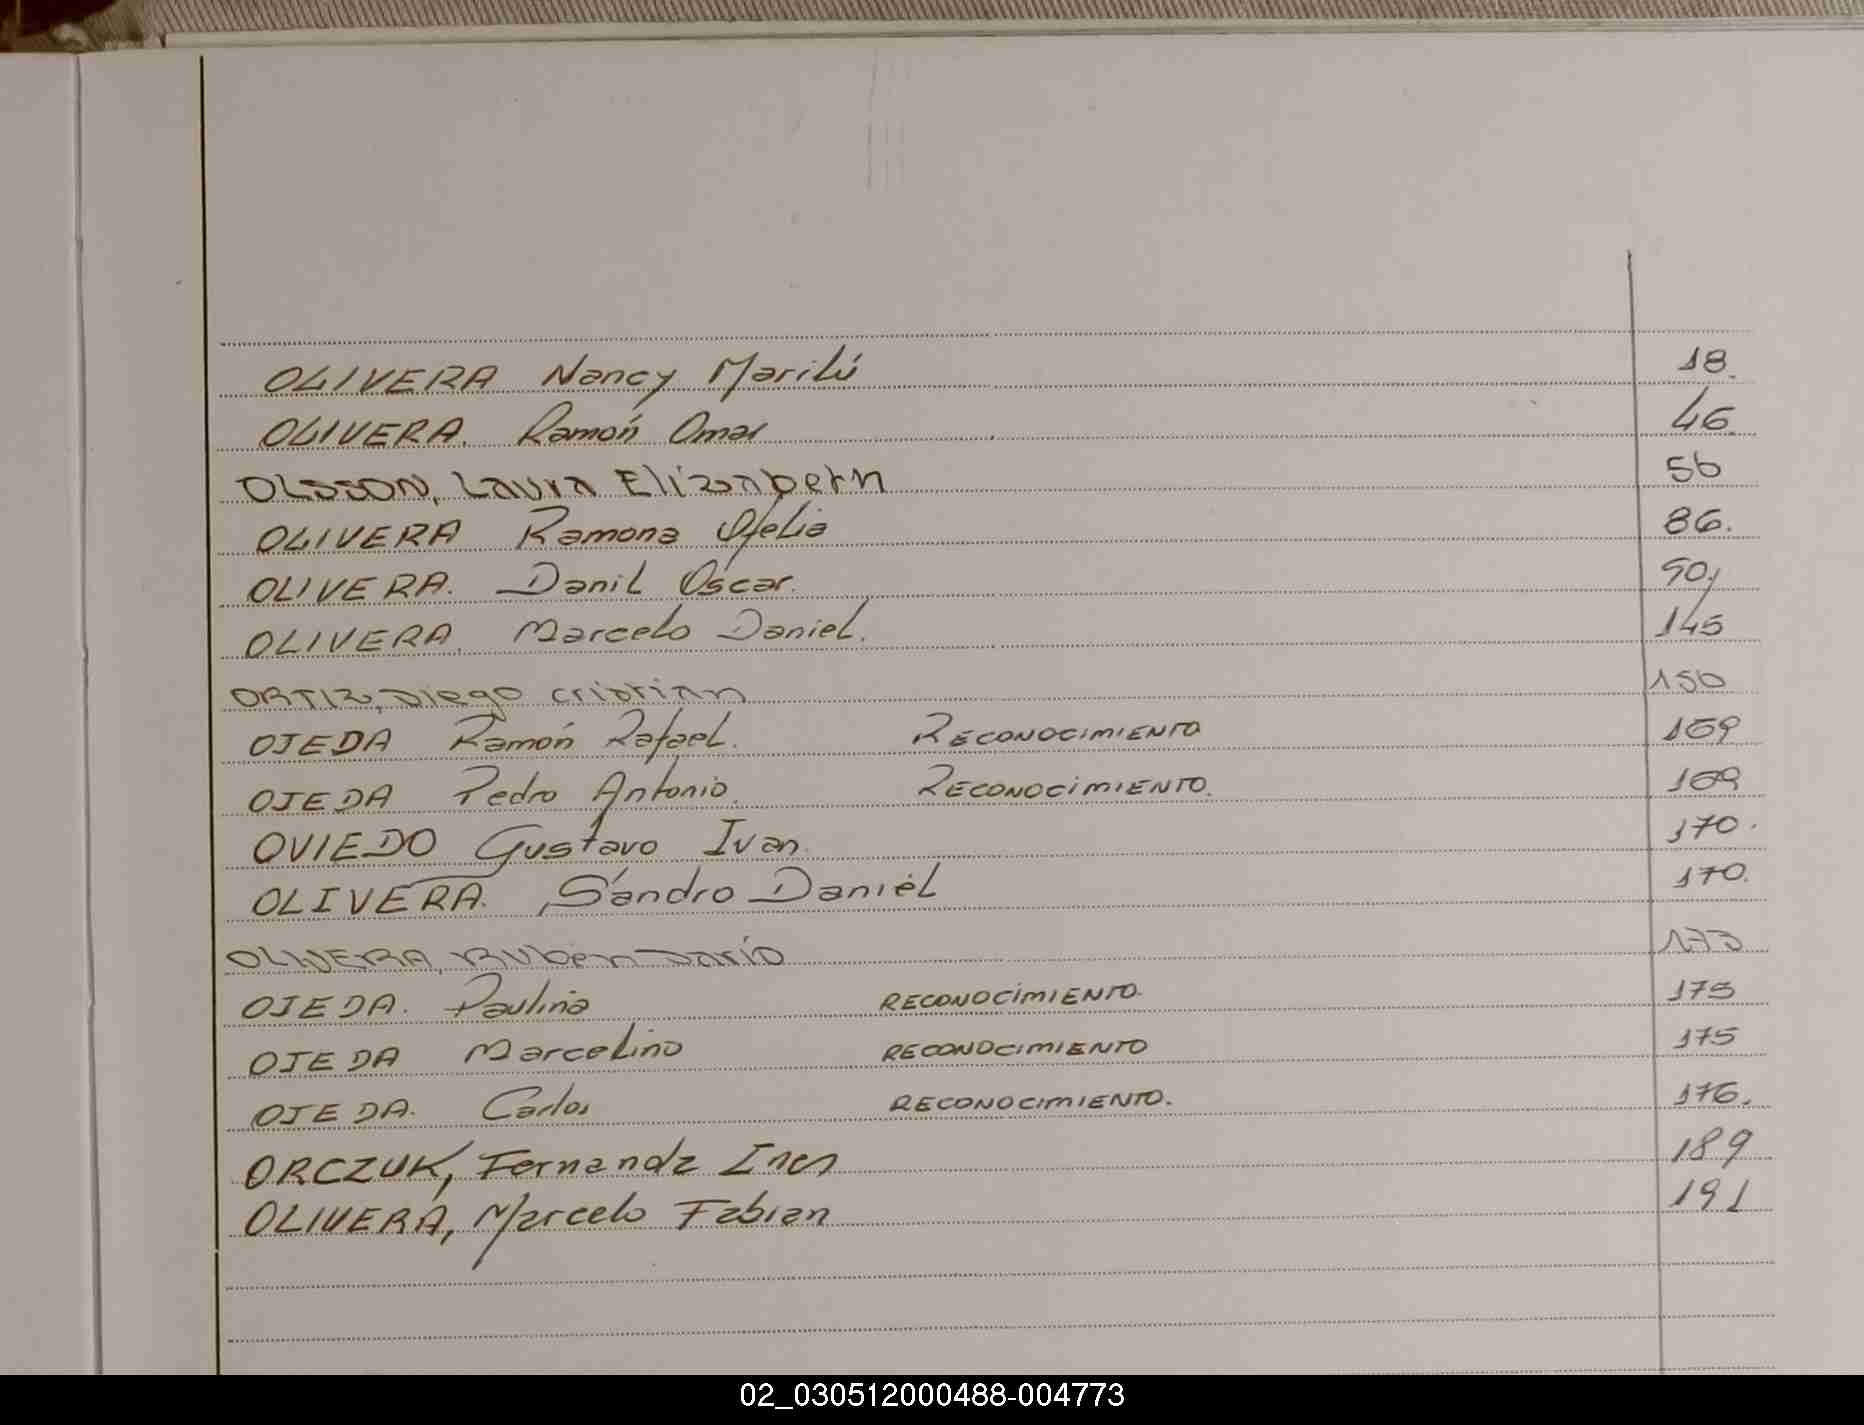 OLIVERA Nancy Marilú 18.
OLIVERA. Ramón Omar 46.
OLSSON, Laura Elizabeth 56
OLIVERA Ramona Ofelia 86.
OLIVERA. Danil Oscar. 90,
OLIVERA. Marcelo Daniel. 145
ORTIZ, Diego Cristian 150
OJEDA Ramón Rafael. RECONOCIMIENTO 169
OJEDA Pedro Antonio. RECONOCIMIENTO. 169
OVIEDO Gustavo Ivan. 170.
OLIVERA. Sandro Daniel 170.
OLIVERA, Ruben Dario 173
OJEDA. Paulina RECONOCIMIENTO. 175
OJEDA Marcelino RECONOCIMIENTO 175
OJEDA. Carlos RECONOCIMIENTO. 176.
ORCZUK, Fernanda Ines 189
OLIVERA, Marcelo Fabian 191
02_030512000488-004773